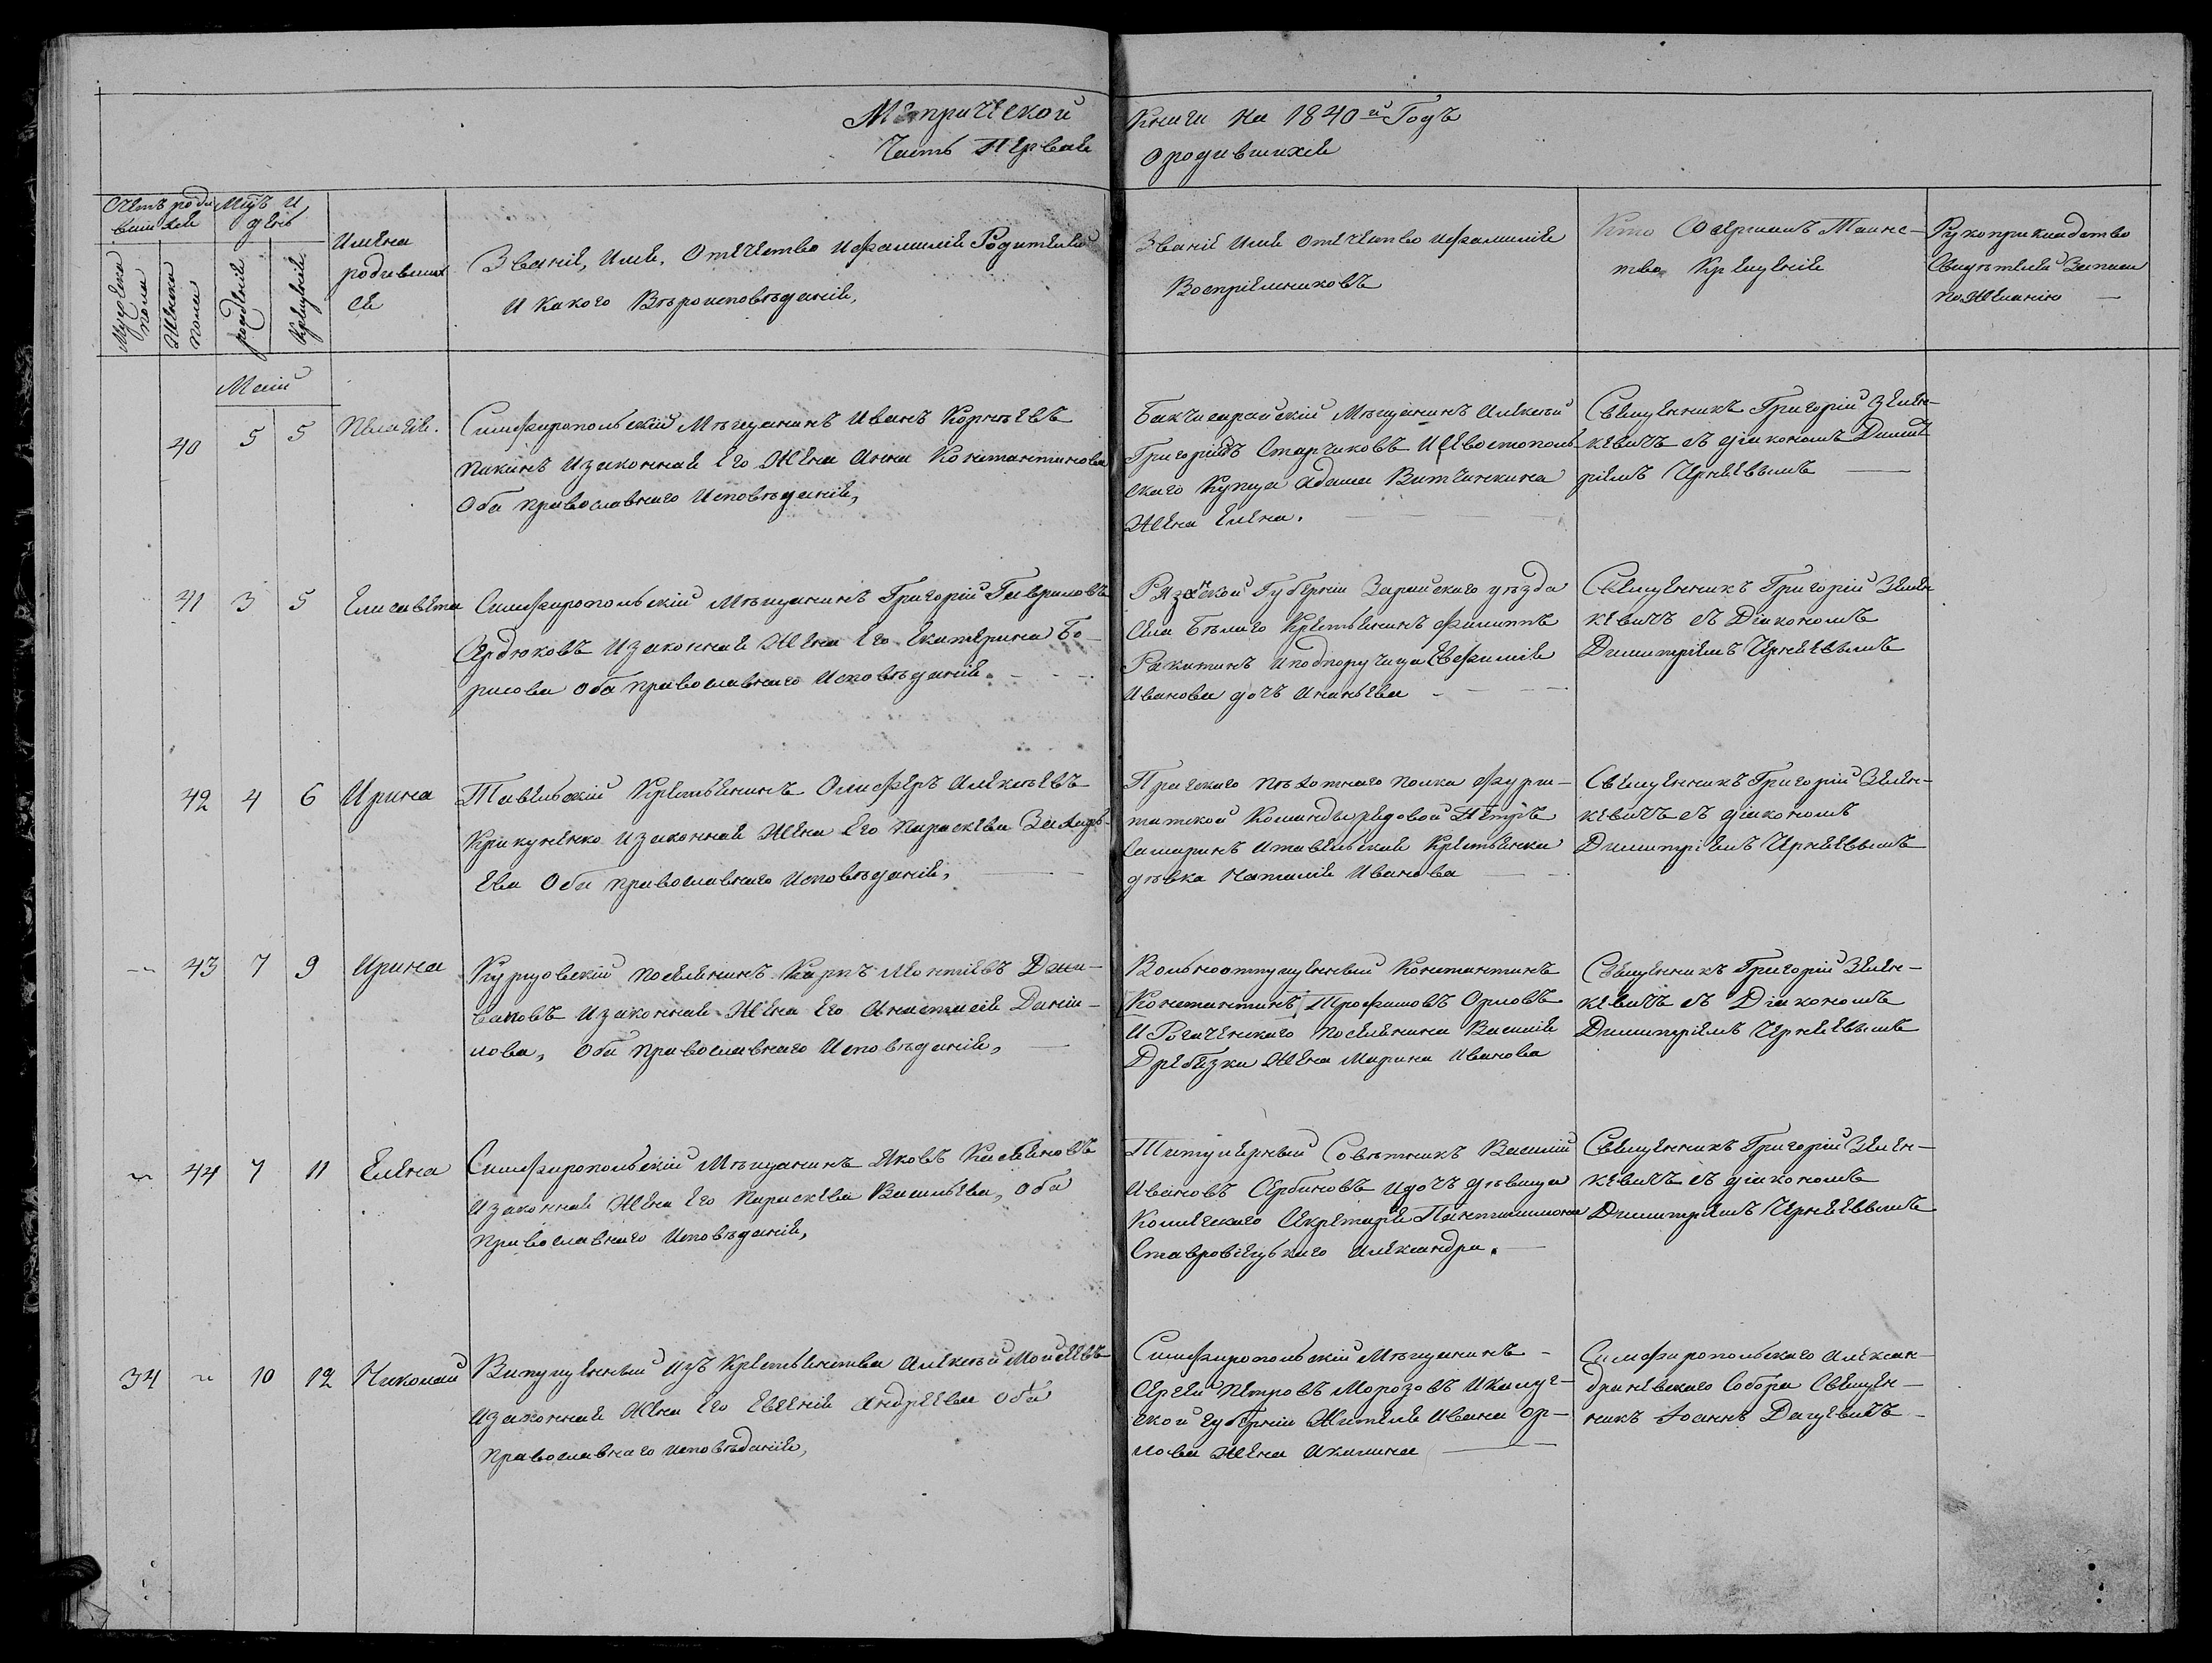 Метрической Книги на 1840-й Годъ
Часть Первая о родившихся
Счетъ роди
вшихся
Мужеска
пола
Женска
пола
Мцъ и
день
рожденія
Крещенія
Имена
родивших
ся
Званіе, Имя, Отечество и Фамилія Родителей
и какого Вѣроисповѣданія,
Званіе Имя Отечество и Фамилія
Воспріемниковъ
Кто Совершалъ Таинс-
тво Крещенія
Рукоприкладство
Свидѣтелей Записи
по Желанію —
Май
40 5 5 Пелагія.
Симферопольскій Мѣщанинъ Иванъ Корнѣевъ
Пикинъ и законная его Жена Анна Константинова
Оба православнаго Исповѣданія,
Бакчисарайскій Мѣщанинъ Алексѣй
Григорьевъ Старчиковъ и Севостополь
скаго Купца Адама Витчинкина
Жена Елена.
Священникъ Григорій Зелен-
кевичъ съ діакономъ Димит
ріемъ Чернеевымъ —
41 3 5 Елисавета
Симферопольскій Мѣщанинъ Григорій Гавриловъ
Сердюковъ и законная Жена его Екатерина Бо-
рисова оба православнаго Исповѣданія.
Рязанской Губерніи Зарайскаго уѣзда
села Бѣлаго Крестьянинъ Филиппъ
Ракитинъ и подпоручица Евфимія
Иванова дочь Ананьева
Священникъ Григорій Зелен
кевичъ съ Діакономъ
Димитріемъ Чернеевымъ
42 4 6 Ирина
Тавельскій Крестьянинъ Олиферъ Алексѣевъ
Крикуненко и законная Жена его Параскева Захарь-
ева Оба православнаго Исповѣданія,
Пражскаго пѣхотнаго полка Фурш-
татской Команды рядовой Петръ
Самаринъ и тавельская Крестьянка
дѣвка Наталія Иванова
Священникъ Григорій Зелен-
кевичъ съ діакономъ
Димитріемъ Чернеевымъ
43 7 9 Ирина
Курцовскій поселянинъ Карпъ Леонтіевъ
и законная Жена его Анастасія Дани-
лова, Оба православнаго Исповѣданія,
Вольноотпущенный Константинъ
Константинъ Трофимовъ Орловъ
и Рогаченскаго поселянина Василія
Дребезки Жена Марина Иванова
Священникъ Григорій Зелен-
кевичъ съ Діакономъ
Димитріемъ Чернеевымъ
44 7 11 Елена
Симферопольскій Мѣщанинъ Яковъ Касьяновъ
и законная Жена его Параскева Васильева, оба
православнаго Исповѣданія,
Титулярный Совѣтникъ Василій
Ивановъ Сербиновъ и дочь дѣвица
Секретаря Пантилимона
Александра.
Священникъ Григорій Зелен-
кевичъ съ діакономъ
Димитріемъ Чернеевымъ
34 10 12 Николай
Випущенный изъ Крестьянства Алексѣй Моисеевъ
и законная Жена его Евгенія Андреева оба
православнаго исповѣданія,
Симферопольскій Мѣщанинъ -
Сергей Петровъ Морозовъ и калуж-
ской губерніи Жителя Ивана Ор-
лова Жена Акилина —
Симферопольскаго Алексан-
дроневскаго Собора Священ-
никъ Іоаннъ Дацевичъ